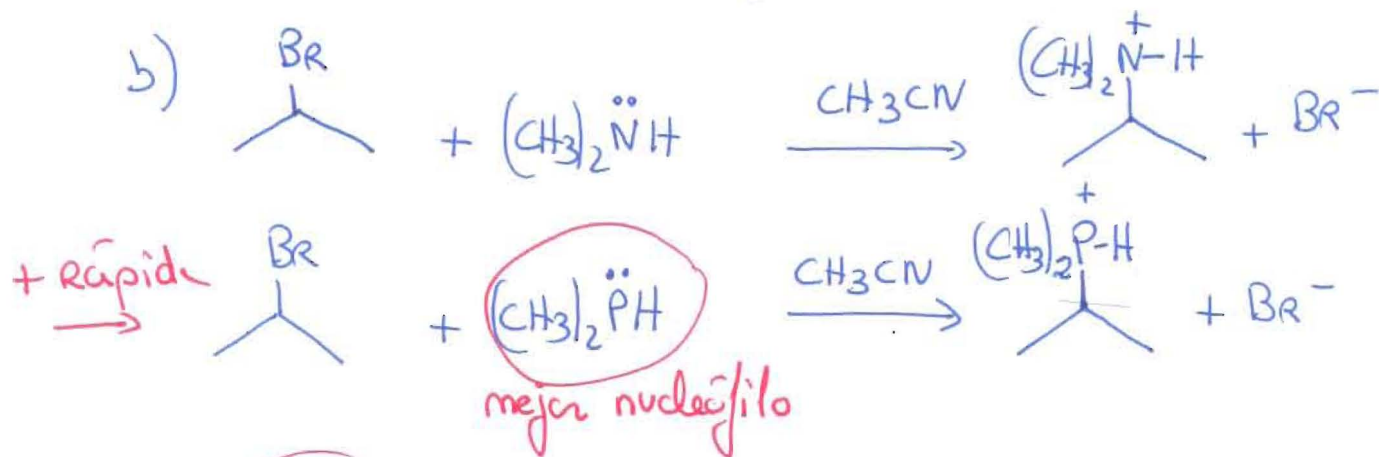 b) BR + (CH3)2 N̈H CH3CN → (CH3)2 N⁺-H + BR⁻
+ Rápida → BR + (CH3)2 P̈H CH3CN → (CH3)2 P⁺-H + BR⁻
mejor nucleófilo